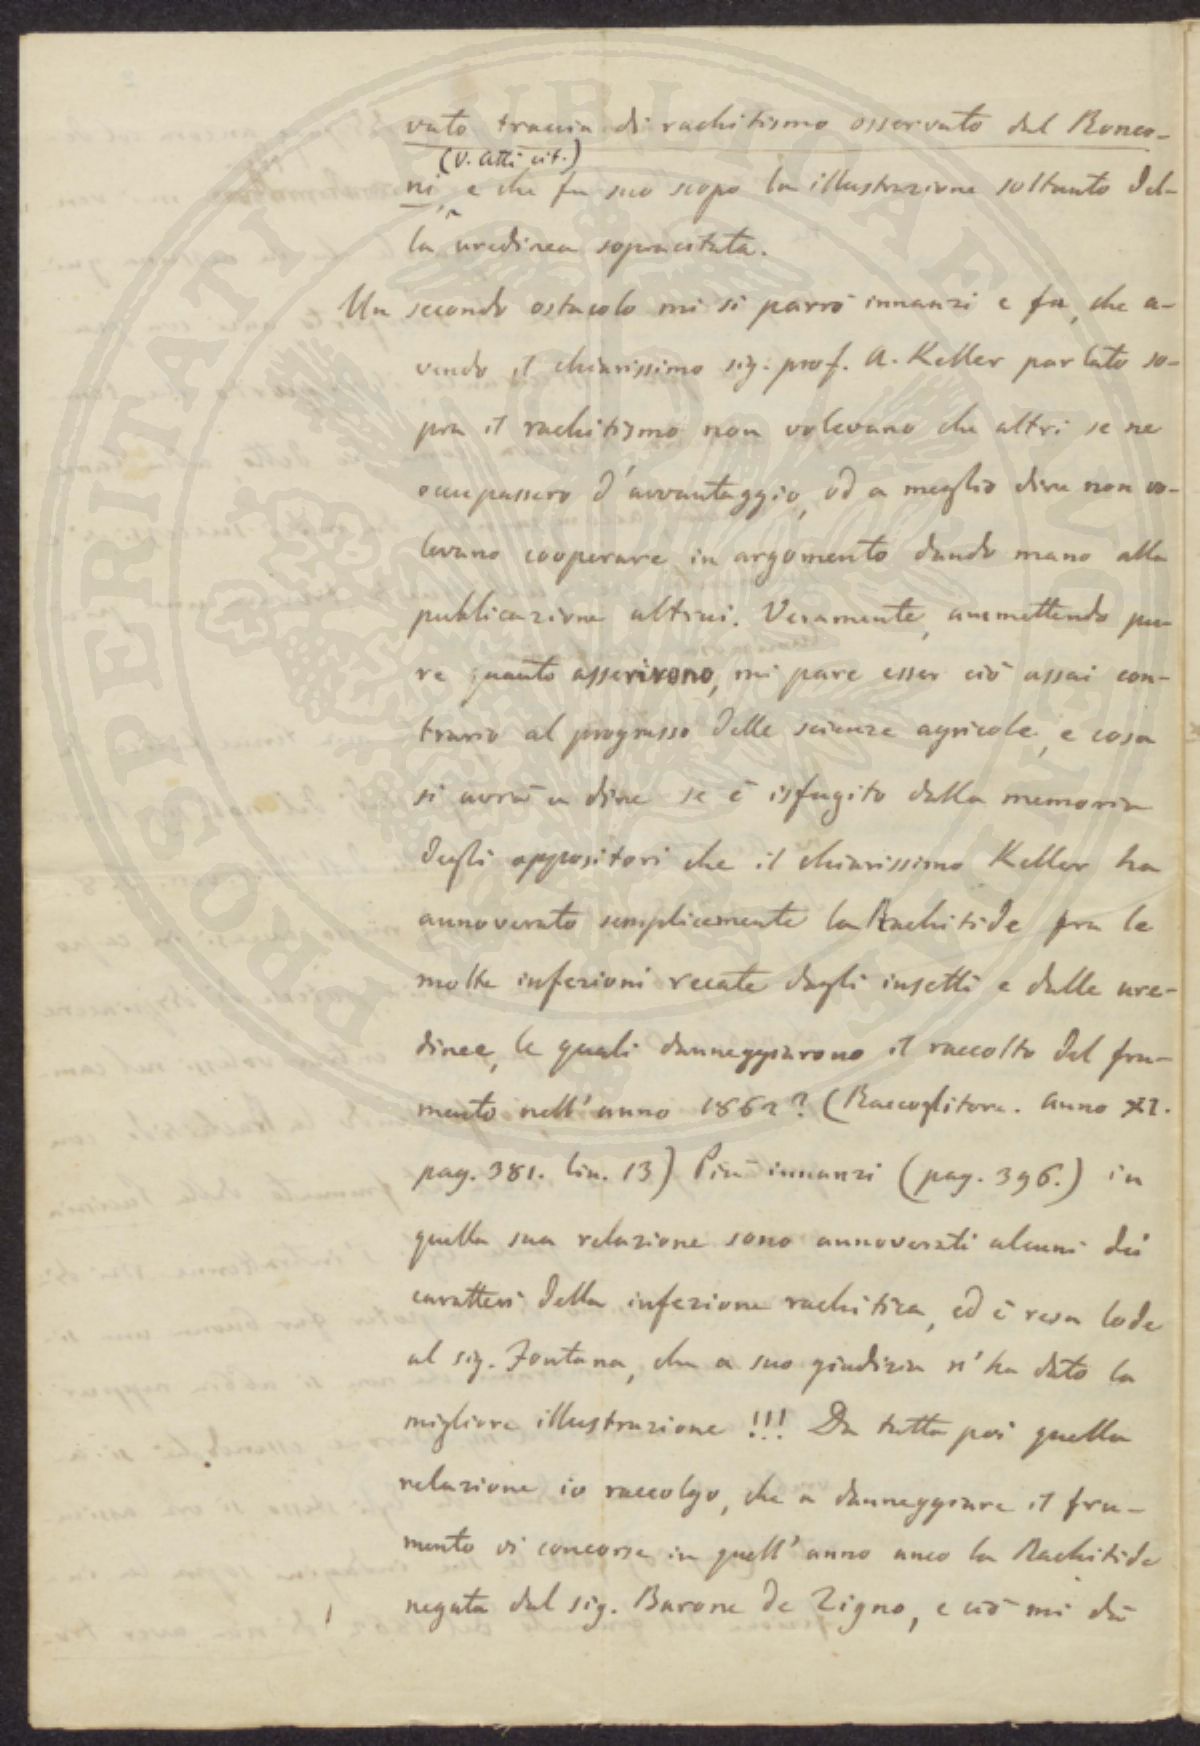 vato traccia di rachitismo osservato dal Ronco-
(V. Atti cit.)
ni, e che fu suo scopo la illustrazione soltanto del-
la uredinea sopracitata.
Un secondo ostacolo mi si parrò innanzi e fu, che a-
vendo il chiarissimo sig. prof. A. Keller parlato so-
pra il rachitismo non volevano che altri se ne
occupassero d'avvantaggio, od a meglio dire non vo-
levano cooperare in argomento dando mano alla
pubblicazione altrui. Veramente, ammettendo pu-
re quanto asserivono, mi pare esser ciò assai con-
trario al progresso delle scienze agricole, e cosa
si avrà a dire se è isfugito dalla memoria
degli oppositori che il chiarissimo Keller ha
annoverato semplicemente la Rachitide fra le
molte infezioni recate dagli insetti e dalle ure-
dinee, le quali danneggiarono il raccolto del fru-
mento nell'anno 1862? (Raccoglitore. Anno XI.
pag. 381. lin. 13) Più innanzi (pag. 396.) in
quella sua relazione sono annoverati alcuni dei
caratteri della infezione rachitica, ed è resa lode
al sig. Fontana, che a suo giudizio n'ha dato la
migliore illustrazione !!! Da tutta poi quella
relazione io raccolgo, che a danneggiare il fru-
mento vi concorse in quell'anno anco la Rachitide
negata dal sig. Barone De Zigno, e ciò mi dà
PROSPERITATI PUBLICAE AUGENDAE